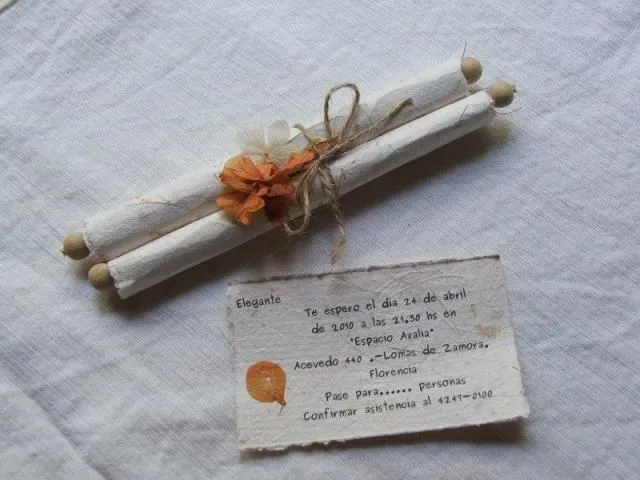 Elegante
Te espero el dia 24 de abril
de 2010 a las 21.30 hs en
"Espacio Azalia"
Acevedo 440 .-Lomas de Zamora.
Florencia
Pase para...... personas
Confirmar asistencia al 4247-0100